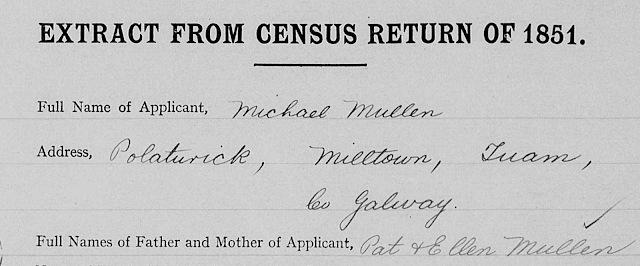 EXTRACT FROM CENSUS RETURN OF 1851.
Full Name of Applicant, Michael Mullen
Address, Polaturick, Milltown, Tuam,
Co Galway.
Full Names of Father and Mother of Applicant, Pat & Ellen Mullen